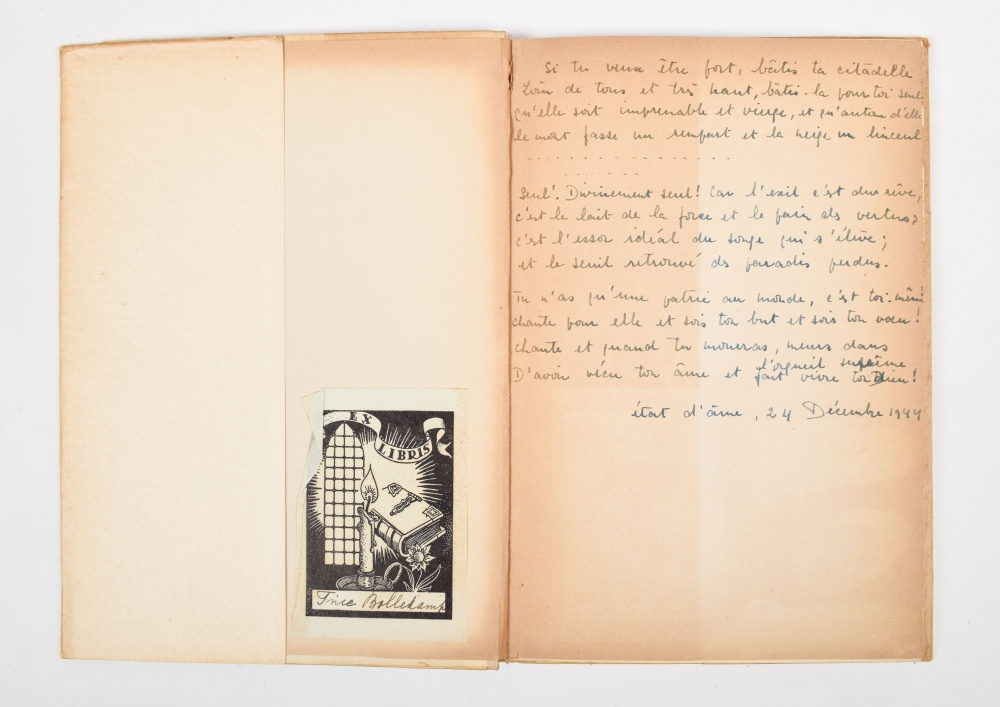 EX
LIBRIS
Bollekamp
Si tu veux être fort, bâtis ta citadelle
Loin de tous et très haut, bâtis-la pour toi seul
qu'elle soit imprenable et vierge, et qu'autour d'elle
le mont fasse un rempart et la neige un linceul
. . . . . . . . . . . . . . . .
. . . . . .
Seul! Divinement seul! Car l'exil c'est du rêve,
c'est le lait de la force et le pain ds vertus;
c'est l'essor idéal du songe qui s'élève;
et le seuil retrouvé ds paradis perdus.
Tu n'as qu'une patrie au monde, c'est toi-même
chante pour elle et sois ton but et sois ton vœu!
chante et quand tu mourras, meurs dans
l'orgueil suprême
D'avoir vécu ton âme et fait vivre ton Dieu!
état d'âme, 24 Décembre 1944